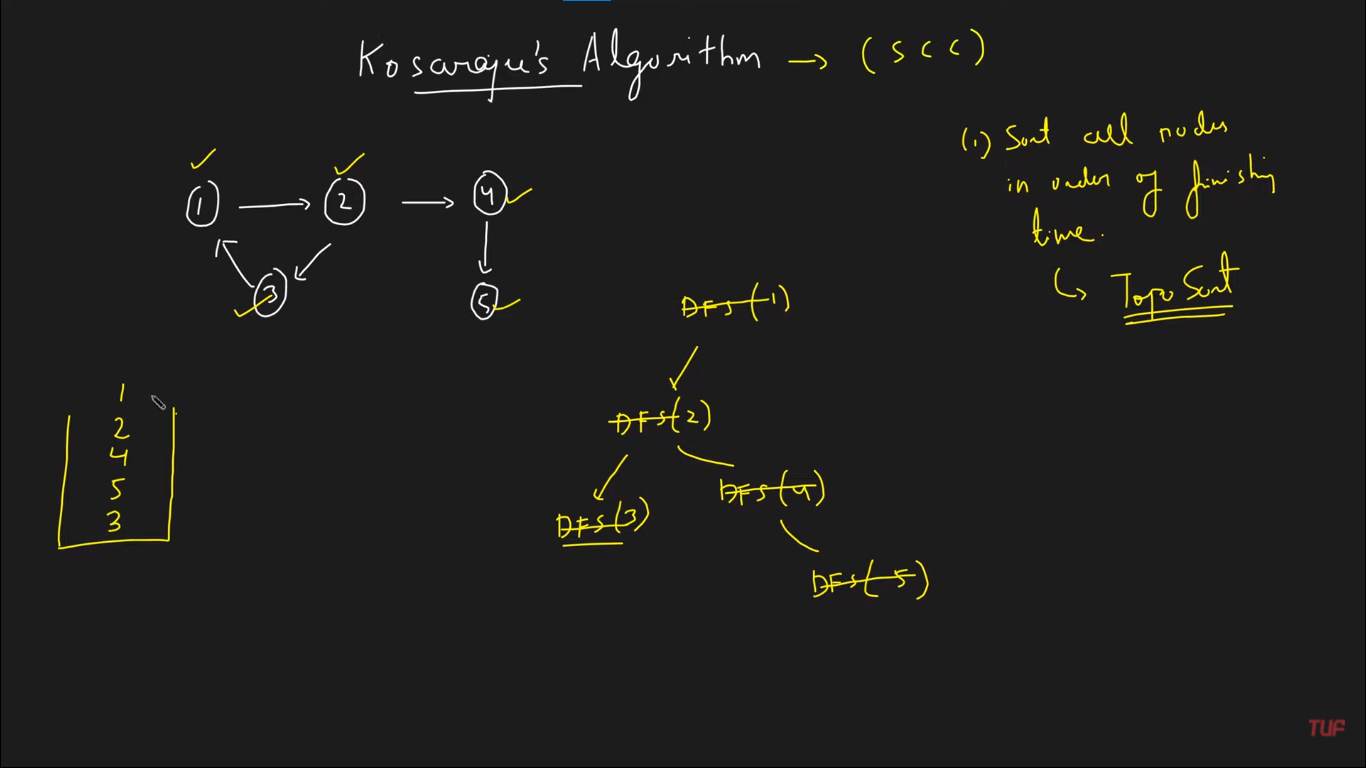 Kosaraju's Algorithm → (SCC)
(1) Sort all nodes
in order of finishing
time.
↳ Topo Sort
1 → 2 → 4
3
5
DFS(1)
DFS(2)
DFS(3)
DFS(4)
DFS(5)
1
2
4
5
3
TUF